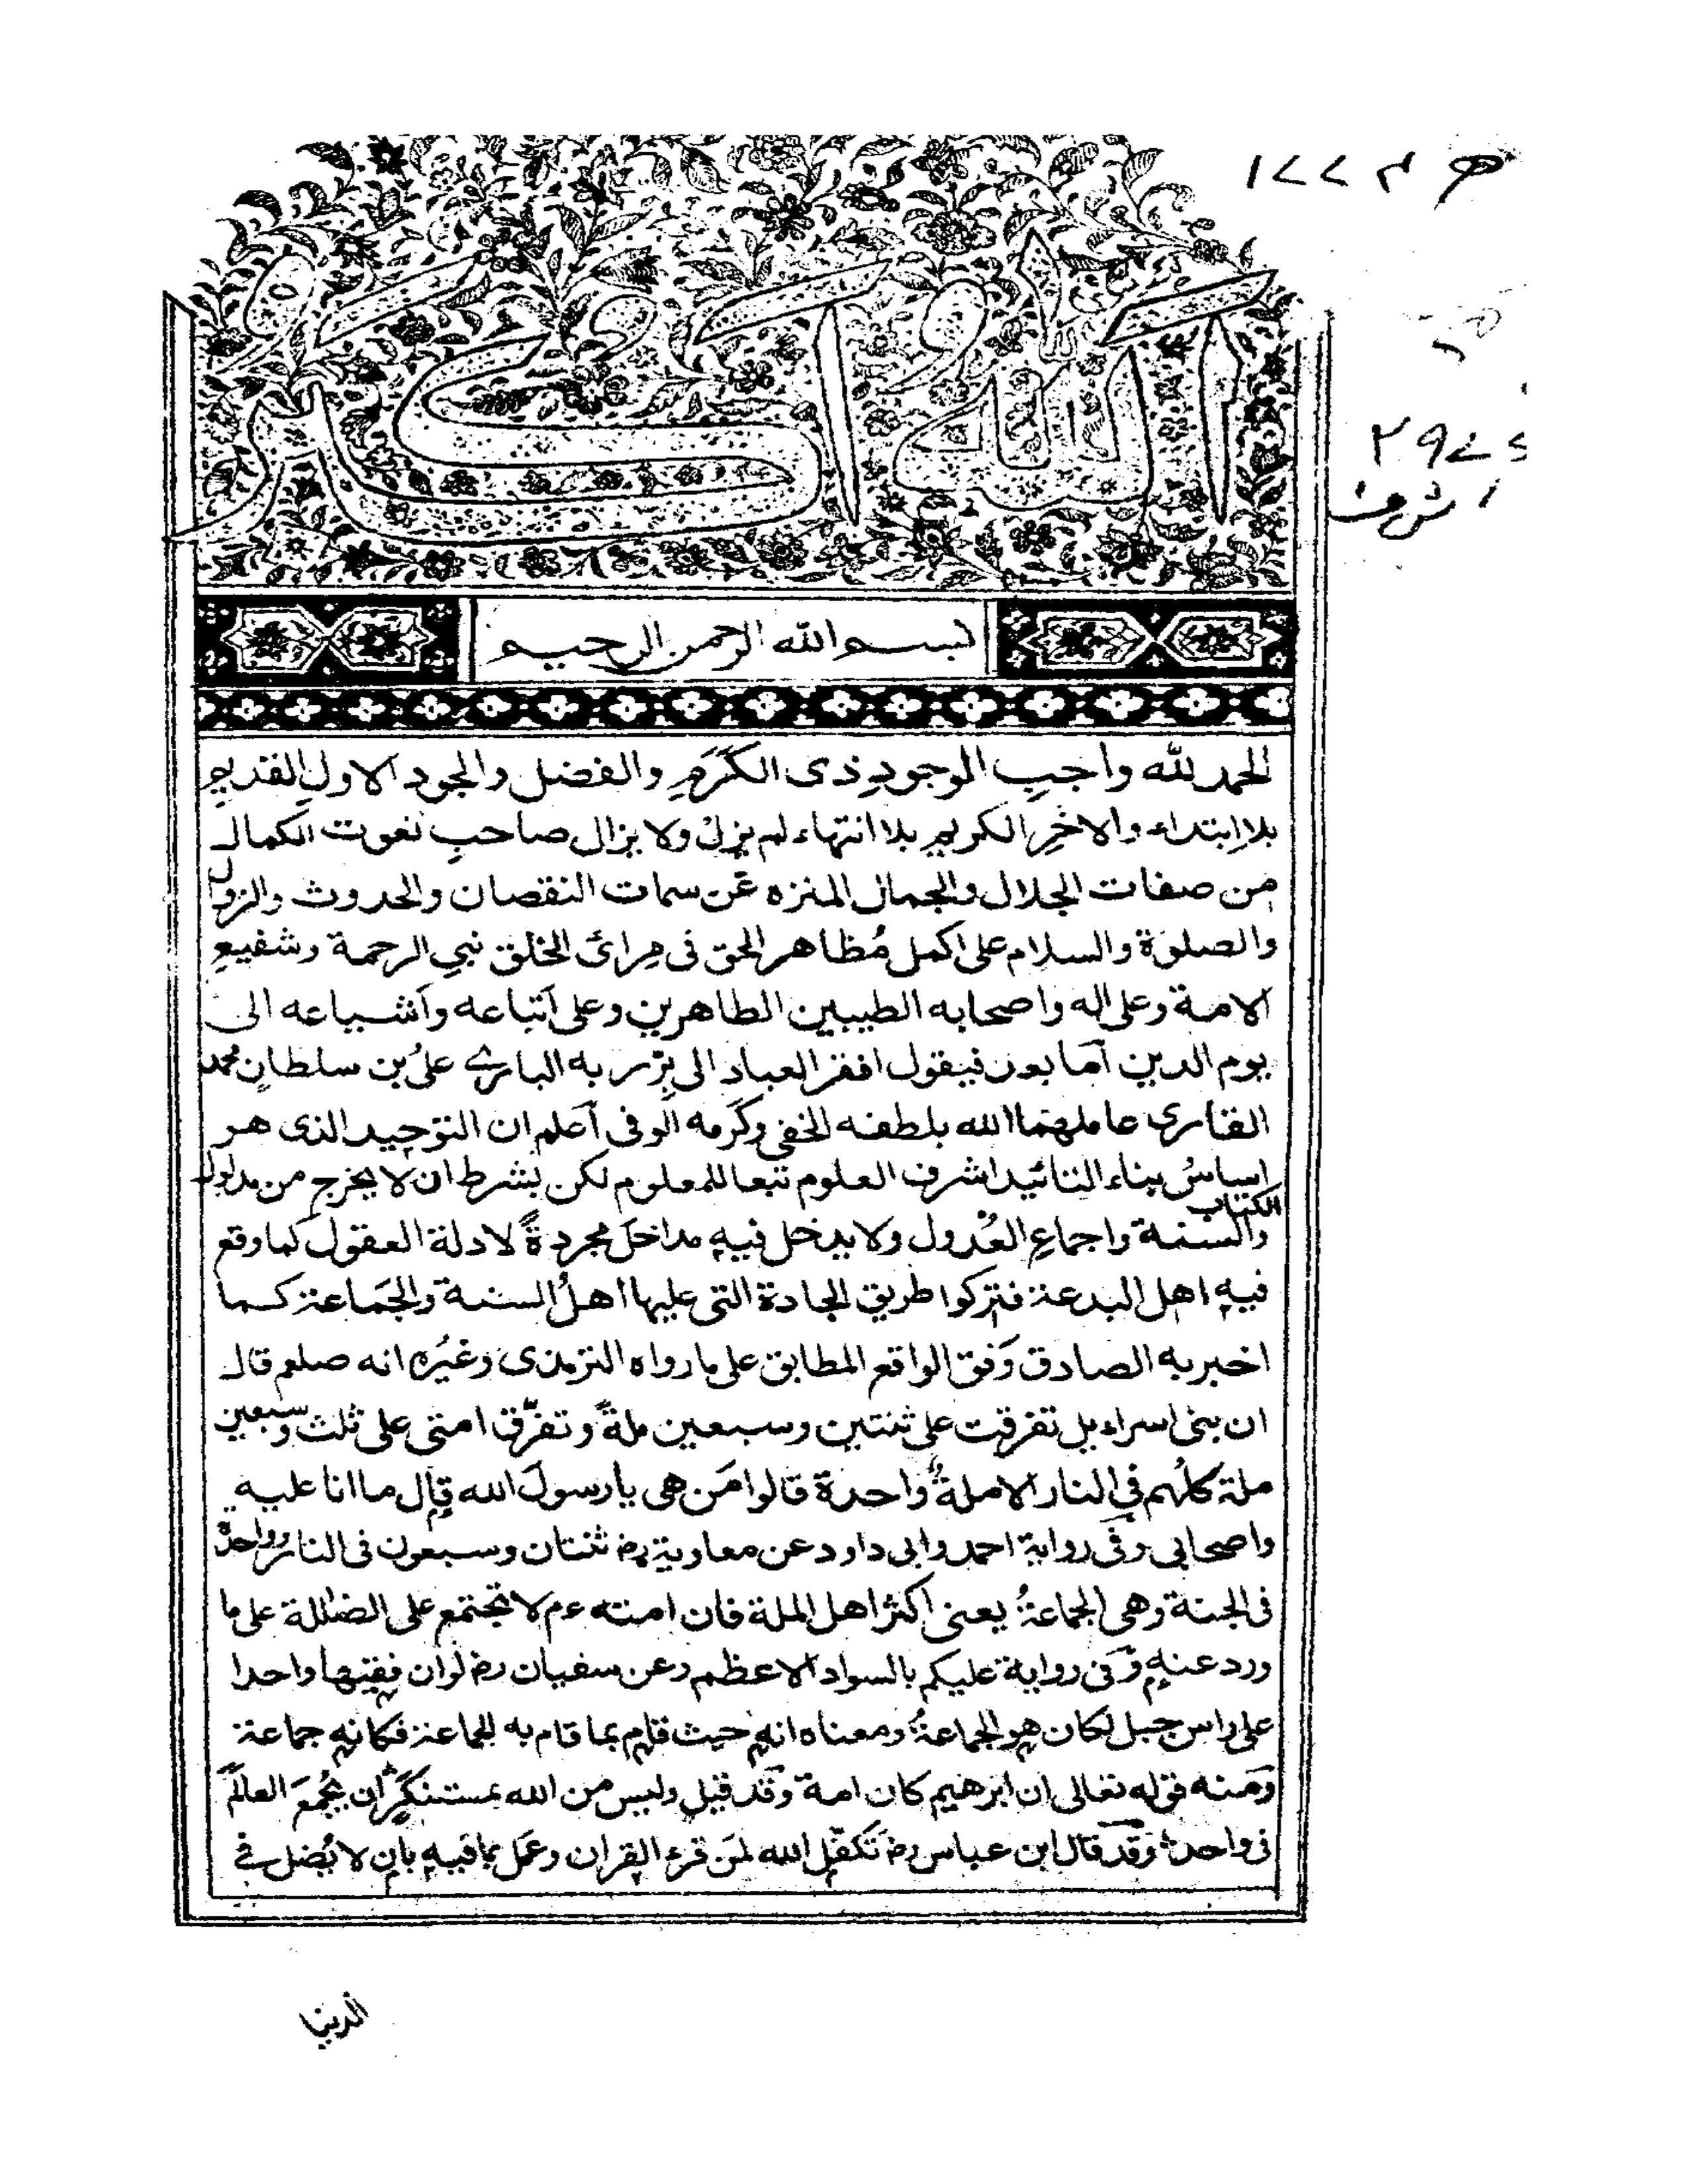 الله اكبر
بسم الله الرحمن الرحيم
الحمد لله واجبِ الوجودِ ذى الكَرَمِ والفضل والجود الاولِ القديم
بلا اِبتداء والاخِرِ الكريم بلا انتهاء لم يزلْ ولا يزال صاحبِ نعوت الكمال
من صفات الجلال والجمال المنزه عَن سمات النقصان والحدوث والزوال
والصلوة والسلام على اكمل مُظاهر الحق فى مِرائ الخلق نبي الرحمة وشفيع
الامة وعلى اله واصحابه الطيبين الطاهرين وعلى اَتباعه واَشياعه الى
يوم الدين اَما بعد فيقول افقر العباد الى بِرّ ربه البارى علىُ بن سلطانِ محمد
القارى عاملهما الله بلطفه الخفى وكَرَمه الوفى اَعلم ان التوحيد الذى هو
اساسُ بناء التائيد اشرف العلوم تبعا للمعلوم لكن بشرط ان لا يخرج من مدلول
الكتاب
والسنة واجماعِ العُدول ولا يدخل فيه مداخلَ مجردةً لادلة العقول كما وقع
فيه اهل البدعة فتركوا طريق الجادة التى عليها اهلُ السنة والجَماعة كما
اخبر به الصادق وَفق الواقع المطابق على ما رواه الترمذى وغيُره انه صلعم قال
ان بنى اسراءيل تفرقت على ثنتين وسبعين ملةً وتفرّق امتى على ثلث وسبعين
ملة كلُهم فى النار الا ملةً واحدة قالوا مَن هى يا رسولَ الله قال ما انا عليه
واصحابى وفى رواية احمد وابى داود عن معاوية رض ثنتان وسبعون فى النار وواحدة
فى الجنة وهى الجماعةُ يعنى اكثر اهل الملة فان امته ءم لا تجتمع على الضلالة على ما
ورد عنه وفى رواية عليكم بالسواد الاعظم وعن سفيان رض لو ان فقيها واحدا
على راس جبل لكان هو الجماعةُ ومعناه انه حيث قام بما قام به الجماعة فكانه جماعة
ومنه قوله تعالى ان ابرهيم كان امة وقد قيل وليس من الله بمستنكَرٍ اَن يَجُمعَ العالَمَ
فى واحد وقد قال ابن عباس رض تَكفّل الله لمَن قرء القران وعَمل بما فيه بان لا يُضل فى
الدنيا